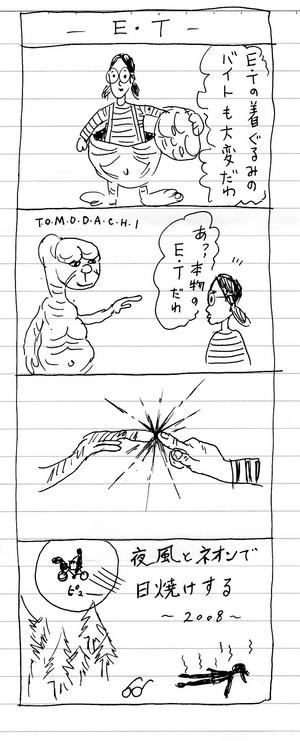 — E・T —
E・Tの着ぐるみの
バイトも大変だわ
T・O・M・O・D・A・C・H・I
あっ、本物の
E・Tだわ
ピュ
夜風とネオンで
日焼けする
～2008～